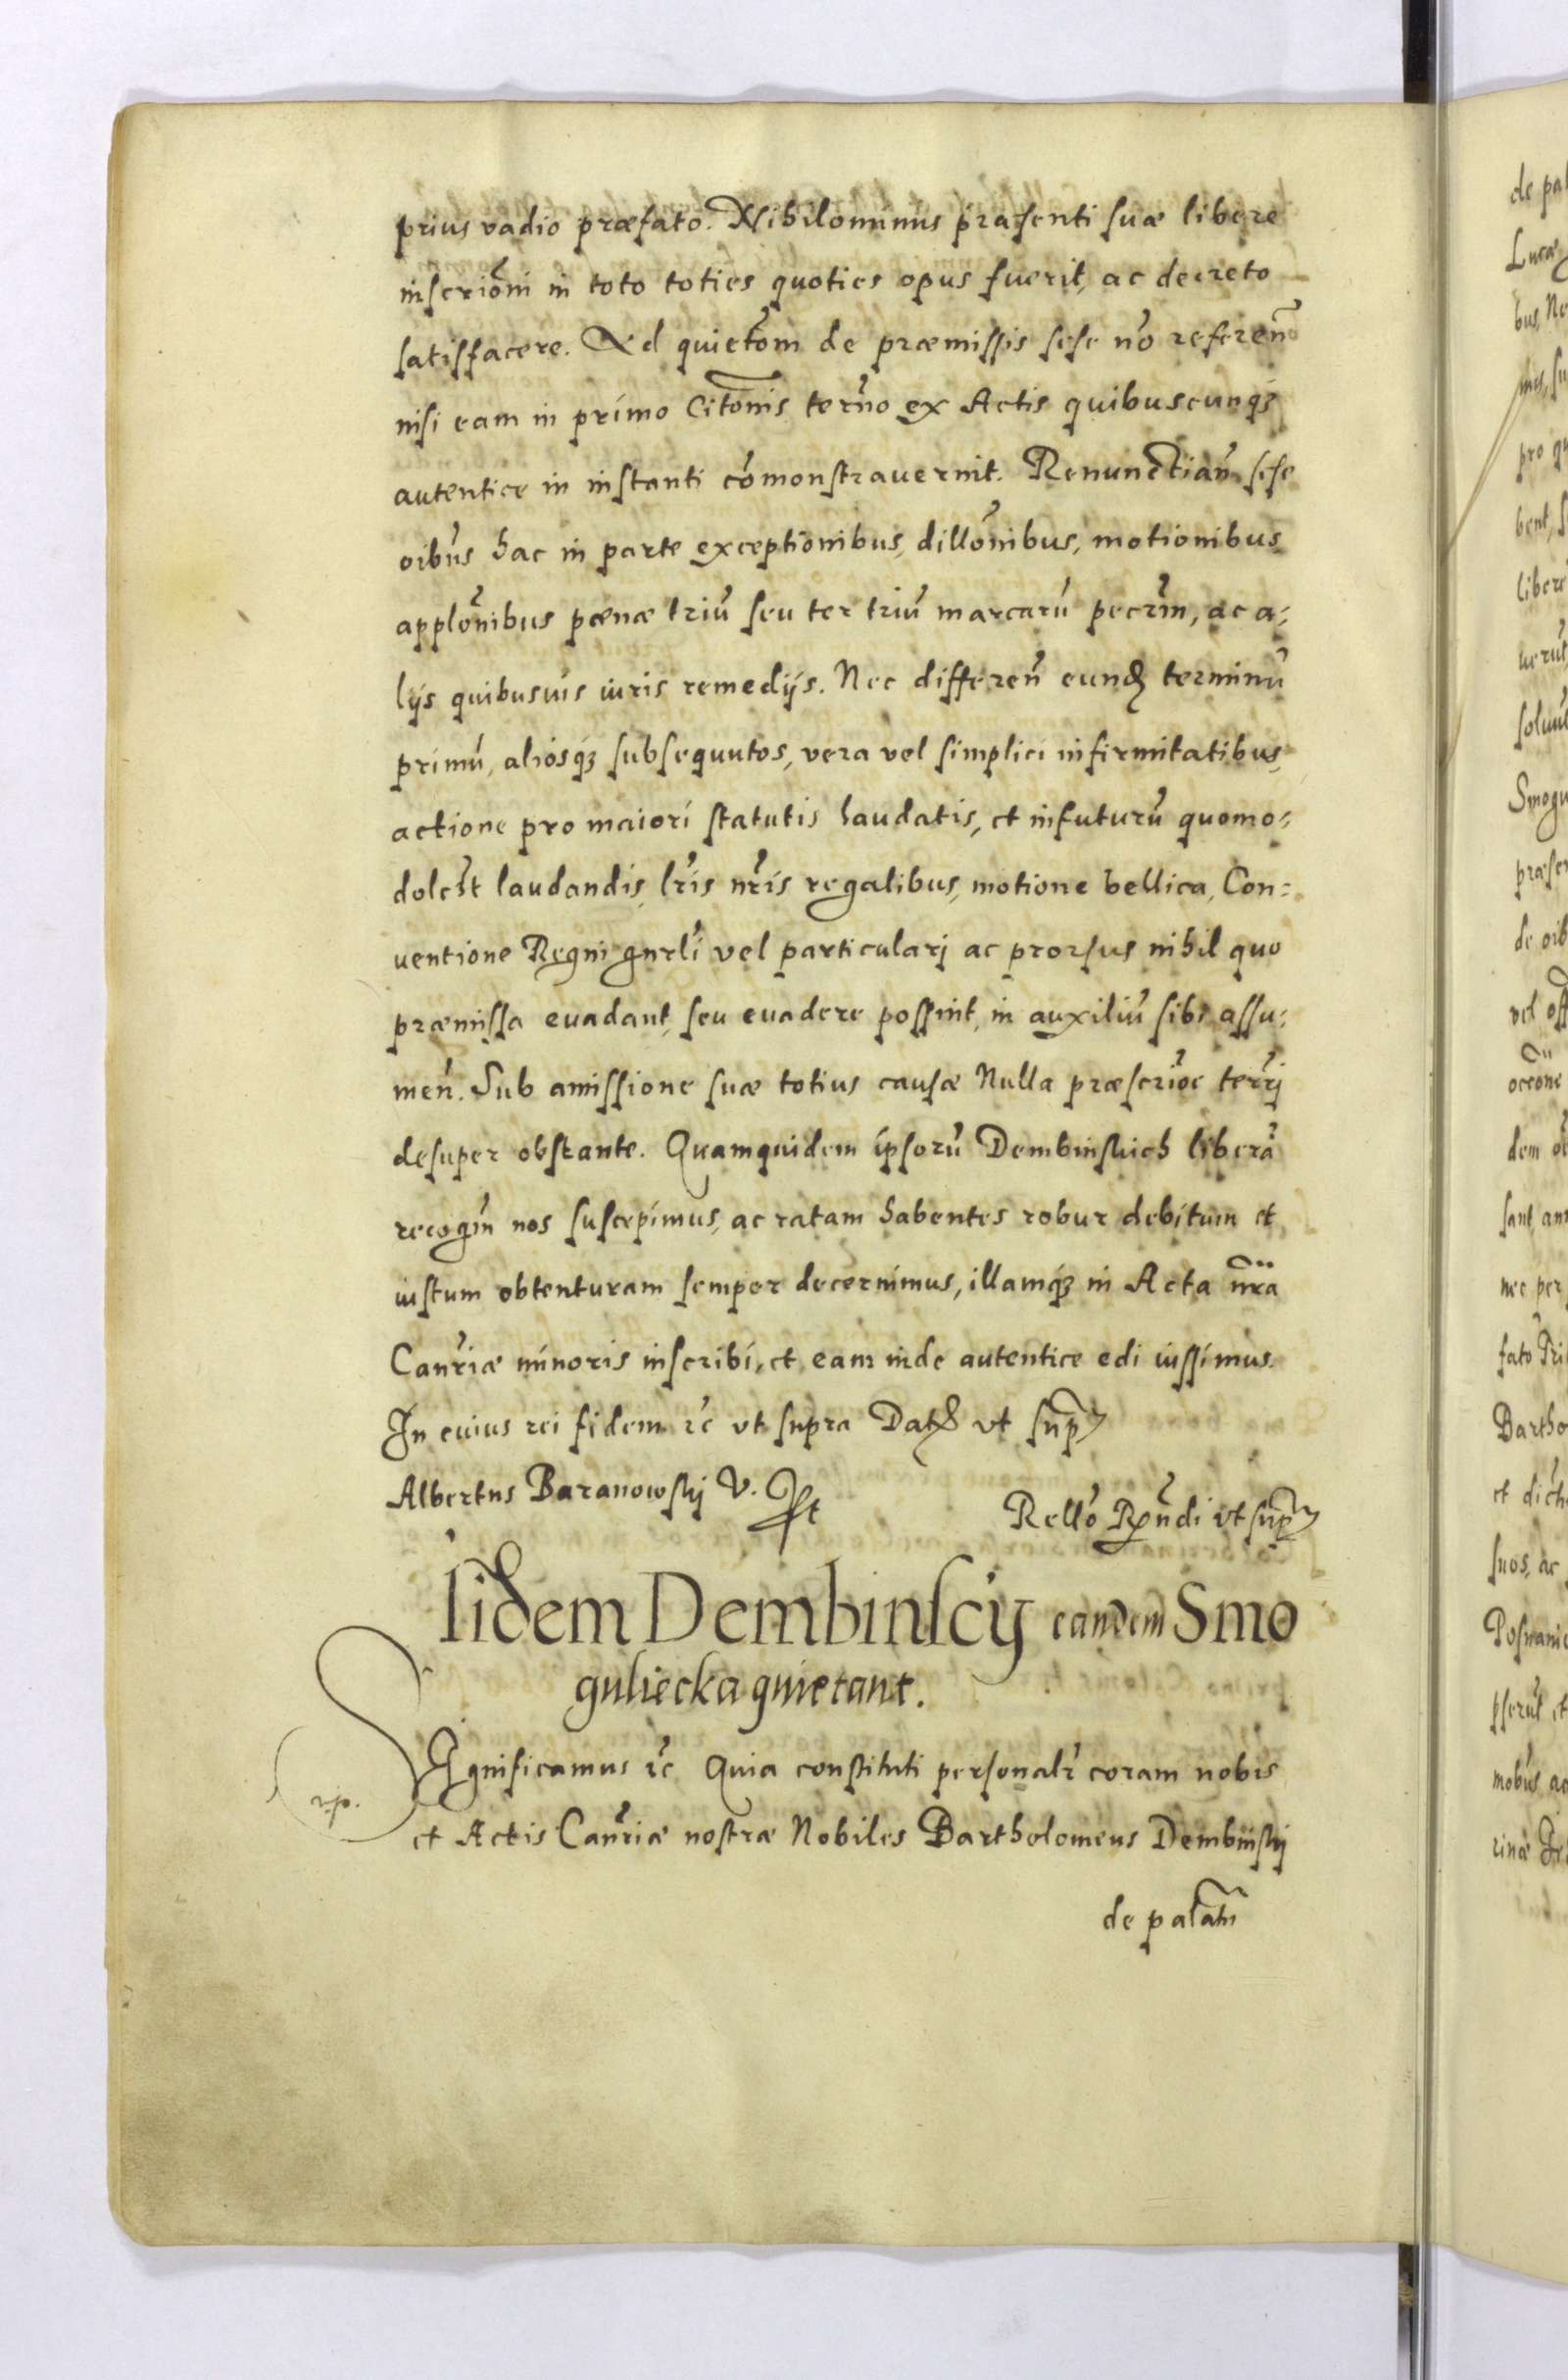 prius vadio præfato. Nihilominus præsenti suæ libere
inscrio͂ni in toto toties quoties opus fuerit, ac decreto
satisfacere. Ad quieto͂m de præmissis sese no͂ referen͂
nisi eam in primo Cito͂nis term͂o ex Actis quibuscunqꝫ
autentice in instanti co͂monstraverint. Renunctian͂ sese
oib͂us hac in parte exceptionibus, dillo͂nibus, motionibus
applo͂nibus pœnæ triu͂ seu ter triu͂ marcaru͂ pecr͂m, ac a=
lijs quibusuis iuris remedijs. Nec differen͂ eund terminu͂
primu͂, aliosqꝫ subsequutos, vera vel simplici infirmitatibus,
actione pro maiori statutis laudatis, et infuturu͂ quomo=
dole͂t laudandis, lr͂is nr͂is regalibus, motione bellica, Con=
uentione Regni gnrl͂i vel particularj ac prorsus nihil quo
præmissa euadant, seu euadere possint, in auxiliu͂ sibi assu=
men͂. Sub amissione suæ totius causæ Nulla præscrio͂e terr͂j
desuper obstante. Quamquidem ipsoru͂ Dembinskich libera͂
recogn͂ nos suscepimus, ac ratam habentes robur debitum et
iustum obtenturam semper decernimus, illamqꝫ in Acta nr͂a
Can͂riæ minoris inscribi, et eam inde autentice edi iussimus.
In cuius rei fidem ꝛc͂ vt supra Dat vt sup͂
Albertus Baranowskj V.
Rello͂ Rn͂di vt sup͂
Iidem Dembinscij eandem Smo
guliecka quietant.
SIgnificamus ꝛc͂ Quia constituti personalr͂ coram nobis
et Actis Can͂riæ nostræ Nobiles Bartholomeus Dembinskj
de palatn͂